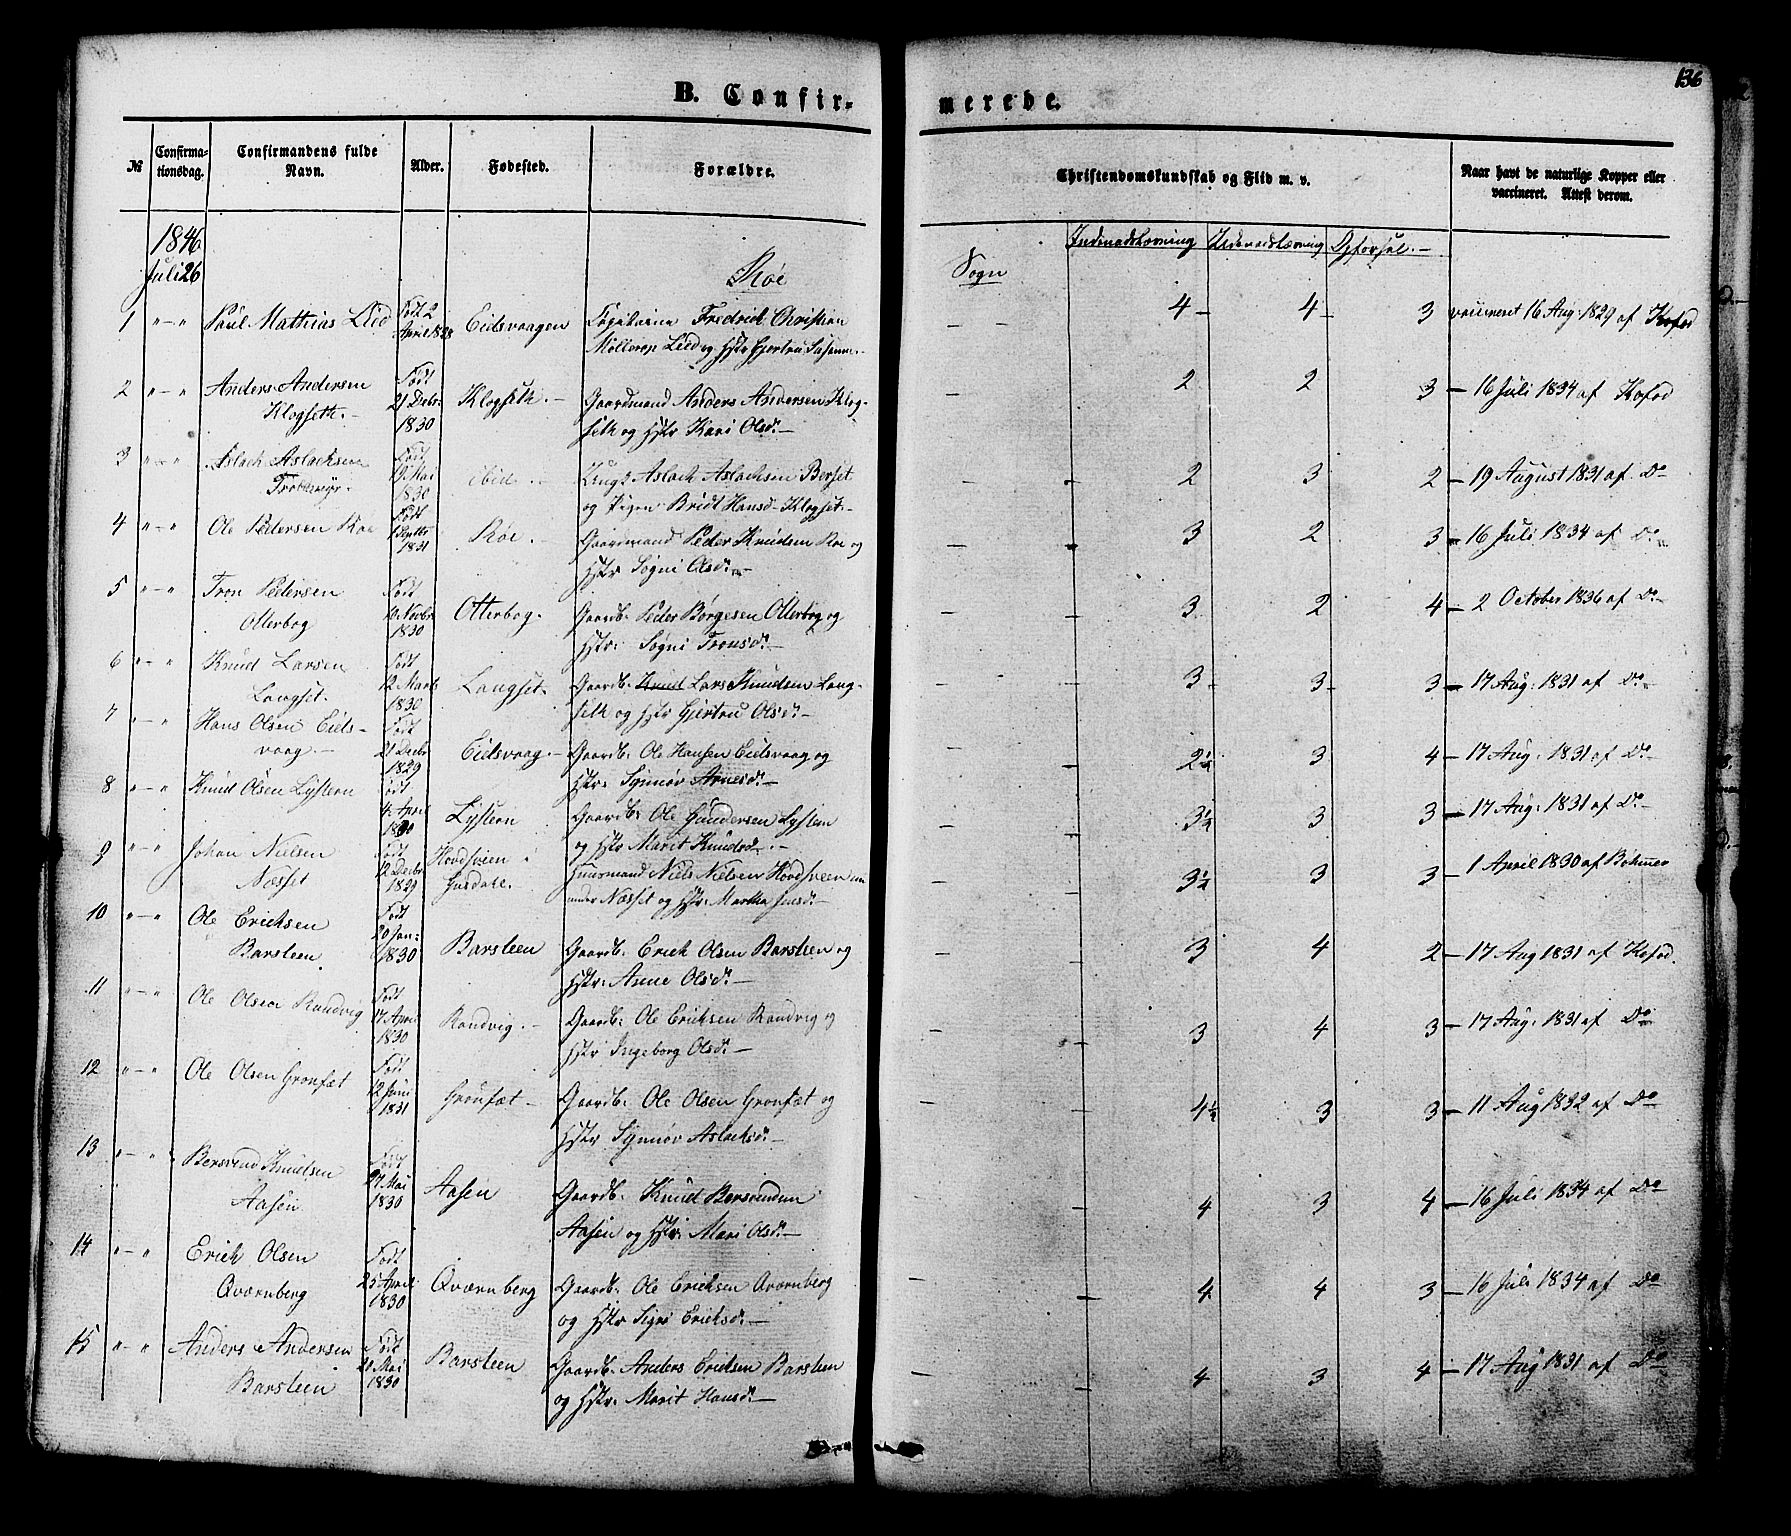 136
B. Confir- merede.
№ Confirma-tionsdag. Confirmandens fulde Navn. Alder. Fødested. Forældre. Christendomskundskab og Flid m. v. Naar havt de naturlige Kopper eller vaccineret. Attest derom.
1846
Juli 26
Røe Sogn
Indenadslæsning Udenadslæsning Opførsel.
1 "–" Paul Mathias Lied Født 2 April 1828 Eidsvaagen Fredrick Christian
Møllerop Lied og Hstr Gjertru Susanna 4 – 4 – 3 vaccineret 16 Aug: 1829 af Kofod
2 "–" Anders Andersen Klogseth. – Født 21 Decbr 1830 Klogseth. – Gaardmand Anders Andersen Klog-
seth og Hstr Kari Olsd: – 2 2 3 – 16 Juli 1834 af Kofod
3 "–" Aslach Aslachsen Født 19 Mai 1830 ibid. – Ungk Aslach Aslachsen Berset
og Pigen Bridt Hansd: Klogset. – 2 3 2 – 19 August 1831 af Do
4 "–" Ole Pedersen Roe Født 1 Septbr 1831 Røe. – Gaardmand Peder Knudsen Roe og
Hstr Sogni Olsd: 3 2 3 – 16 Juli 1834 af Do
5 "–" Tron Pedersen Otterbog Født 10 Novbr 1830 Otterbog. – Gaardb: Peder Børgesen Otterbog og
Hstr: Søgni Tronsd: – 3 2 4 – 2 October 1836 af Do –
6 "–" Knud Larsen Langset. Født 12 Marts 1830 Langset. Gaardb: Knud Lars Knudsen Lang-
seth og Hstr Gjertru Olsd: – 3 – 3 – 3 – 17 Aug: 1831 af Do
7 "–" Hans Olsen Eids-vaag – Født 21 Decbr 1829 Eidsvaag – Gaardb: Ole Hansen Eidsvaag og
Hstr: Synnøv Arnesd: – 2½ 3 4 – 17 Aug: 1831 af Do –
8 "–" Knud Olsen Lystern Født 4 April 1830 Lystern Gaardb: Ole Gundersen Lysten
og Hstr Marit Knudsd – 3½ 3 3 – 17 Aug: 1831 af Do –
9 "–" Johan Nielsen Næsset Født 12 Decbr 1829 Hovdsveen i Gusdale. Huusmand Niels Nielsen Hovdsveen
under Næsset og Hstr: Martha Jensd: – 3½ 3 3 – 1 April 1830 af Bøhmer
10 "–" Ole Ericksen Barsteen Født 20 Jan: 1830 Barsteen Gaardb: Erich Olsen Barsteen og
Hstr: Anne Olsd: – 3 4 2 – 17 Aug 1831 af Kofod.
11 "–" Ole Olsen Randvig Født 17 April 1830 Randvig. – Gaardb: Ole Ericksen Randvig og
Hstr Ingeborg Olsd: – 3 4 3 – 17 Aug: 1831 af Do
12 "–" Ole Olsen Gronfæt Født 12 Juni 1831 Gronfæt – Gaardb: Ole Olsen Gronfæt og
Hstr Synnøv Aslachsd: 4½ 3 3 – 11 Aug 1832 af Do
13 "–" Bersvend Knudsen Aasen Født 27 Mai 1830 Aasen Gaardb: Knud Bersvendsen
Aasen og Hstr: Mari Olsd: – 4 3 4 – 16 Juli 1834 af Do
14 "–" Erich Olsen Qværnberg Født 25 April 1830 Qværnberg Gaardb: Ole Ericksen Qværnberg
og Hstr Sigri Ericksd: – 4 4 3 – 16 Juli 1834 af Do
15 "–" Anders Andersen Barsteen Født 20 Mai 1830 Barsteen Gaardb: Anders Ericksen Barsteen
og Hstr: Marit Hansd: – 4 3 4 – 17 Aug 1831 af Do